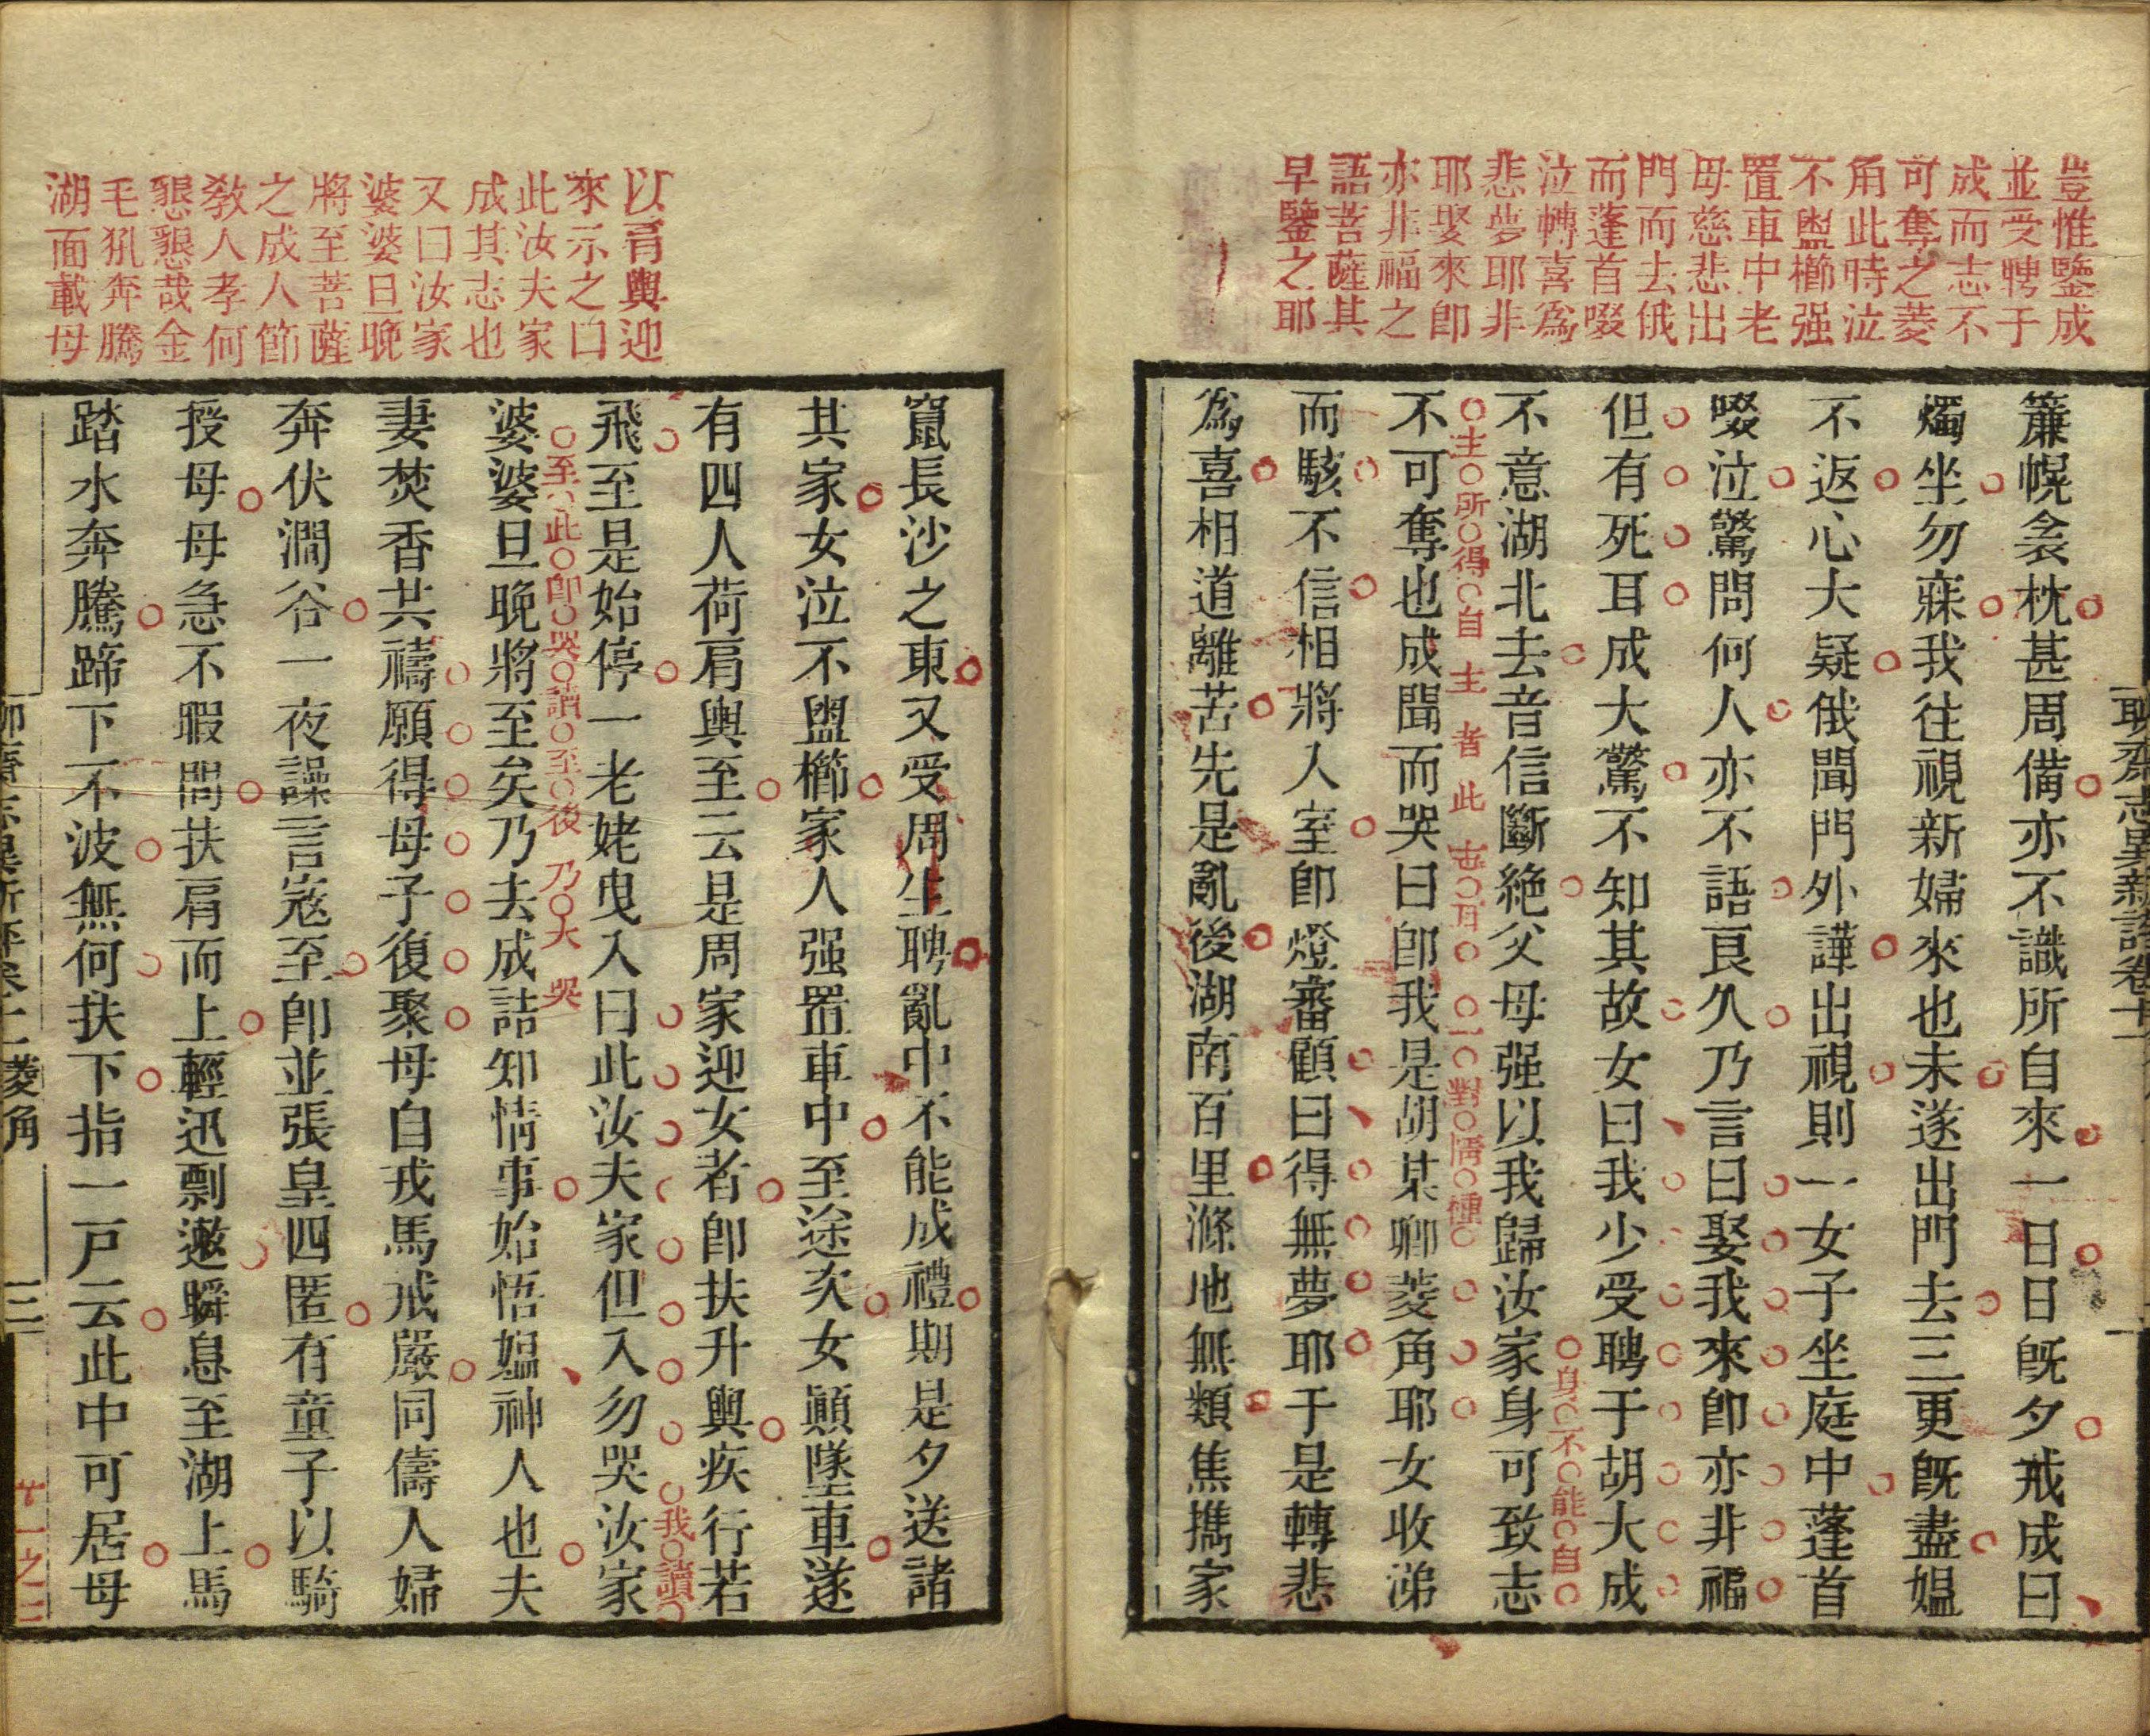 豈惟鑒成
並受聘于
成而志不
可奪之菱
角此時泣
不盥櫛强
置車中老
母慈悲出
門而去俄
而蓬首啜
泣轉喜爲
悲夢耶非
耶娶來卽
亦非福之
語菩薩其
早鑒之耶
簾幌衾枕甚周備亦不識所自來一日日旣夕戒成曰
燭坐勿寐我往視新婦來也未遂出門去三更旣盡媼
不返心大疑俄聞門外譁出視則一女子坐庭中蓬首
啜泣驚問何人亦不語良久乃言曰娶我來卽亦非福
但有死耳成大驚不知其故女曰我少受聘于胡大成
不意湖北去音信斷絶父母强以我歸汝家身可致志
不可奪也成聞而哭曰卽我是胡某卿菱角耶女收涕
而駭不信相將入室卽燈審顧曰得無夢耶于是轉悲
爲喜相道離苦先是亂後湖南百里滌地無類焦擕家
以肩輿迎
來示之曰
此汝夫家
成其志也
又曰汝家
婆婆旦晚
將至菩薩
之成人節
敎人孝何
懇懇哉金
毛犼奔騰
湖面載母
竄長沙之東又受周生聘亂中不能成禮期是夕送諸
其家女泣不盥櫛家人强置車中至途次女顚墜車遂
有四人荷肩輿至云是周家迎女者卽扶升輿疾行若
飛至是始停一老姥曳入曰此汝夫家但入勿哭汝家
婆婆旦晚將至矣乃去成詰知情事始悟媼神人也夫
妻焚香共禱願得母子復聚母自戎馬戒嚴同儔人婦
奔伏澗谷一夜譟言寇至卽並張皇四匿有童子以騎
授母母急不暇問扶肩而上輕迅剽遬瞬息至湖上馬
踏水奔騰蹄下不波無何扶下指一戸云此中可居母
菱角
三